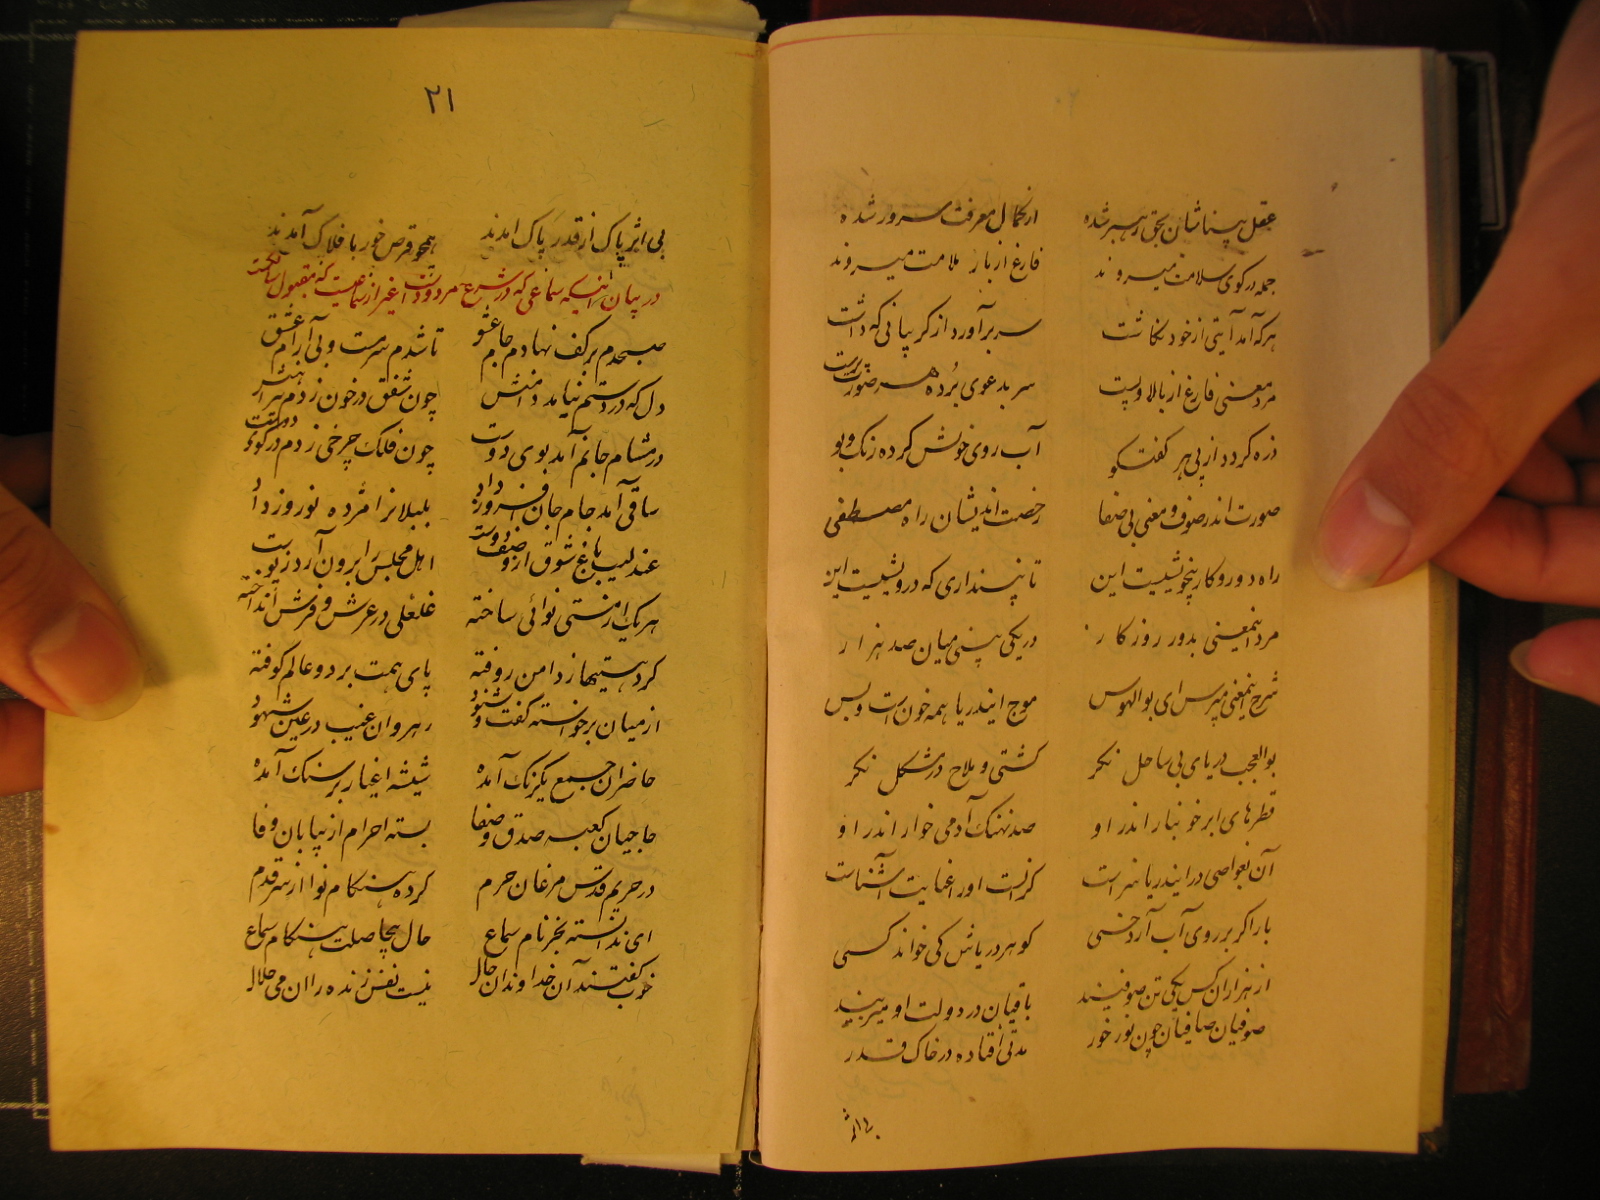 ۲۰
عقل پیناشان بحق رهبر شده از کمال معرفت سرور شده
جمله در کوی سلامت میروند فارغ از بار ملامت میروند
هر که آمد آیتی از خود نگاشت سر برآورد از کریبانی که داشت
مرد معنی فارغ از بالا و پست سر بدعوی برده هر صورت پرست
ذره کردد از پی هر گفتگو آب روی خویش کرده رنک و بو
صورت اندر صوف و معنی بی صفا رخصت اندیشان راه مصطفی
راه دور و کار بیخویشیست این تا نپنداری که درویشیست این
مرد اینمعنی بدور روزکار در یکی بینی میان صد هزار
شرح اینمعنی مپرس ای بوالهوس موج ایندریا همه خون است و بس
بوالعجب دریای بی ساحل نکر کشتی و ملاح در مشکل نکر
قطرهای ابر خونبار اندر او صد نهنک آدمی خوار اندر او
آن بغواصی در ایندریا سزاست کز نخست اورا عنایت آشناست
بارا کر بر روی آب آرد خسی کوهر دریاش کی خواند کسی
از هزاران کس یکی تن صوفیند باقیان در دولت او میزیند
صوفیان صافیان چون نور خور مدتی افتاده در خاک قدر
بی اثر
۲۱
بی اثر پاک از قدر پاک امدند همچو قرص خور با فلاک آمدند
در بیان اینکه سماعی که در شرع مردودست غیر از سماعیست که مقبول سالکست
صبحدم بر کف نهادم جام عشق تا شدم سرمست و بی آرام عشق
دل که در دستم نیامد دامنش چون شفق در خون زدم پیراهنش
در مشام جانم آمد بوی دوست چون فلک چرخی زدم در کوی دوست
ساقی آمد جام جان افروز داد بلبلانرا مژده نوروز داد
عندلیب باغ شوق از وصف دوست اهل مجلس را برون آرد ز پوست
هر یک از مستی نوائی ساخته غلغلی در عرش و فرش انداخته
کرد هستیها ز دامن روفته پای همت بر دو عالم کوفته
از میان برخواسته گفت و شنود رهروان غیب در عین شهود
حاضران جمع یکرنک آمده شیشه اغیار بر سنک آمده
حاجیان کعبه صدق و صفا بسته احرام از بیابان وفا
در حریم قدس مرغان حرم کرده هنکام نوا از سر قدم
ای ندانسته بجز نام سماع حال بیحاصلت هنکام سماع
خوب کفتند آن خداوندان حال نیست نفس زنده را ان می حلال